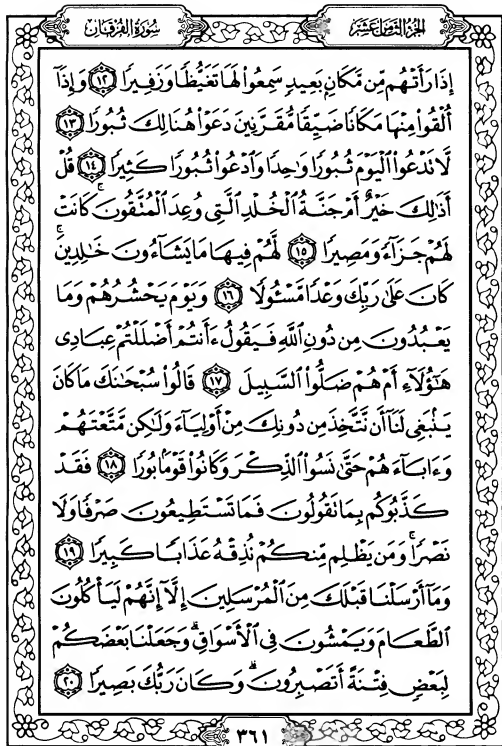 سُورَةُ الفُرْقَان
الجُزْءُ الثَّامِنَ عَشَرَ
إِذَا رَأَتْهُم مِّن مَّكَانٍ بَعِيدٍ سَمِعُوا۟ لَهَا تَغَيُّظًا وَزَفِيرًا ۝١٢ وَإِذَآ
أُلْقُوا۟ مِنْهَا مَكَانًا ضَيِّقًا مُّقَرَّنِينَ دَعَوْا۟ هُنَالِكَ ثُبُورًا ۝١٣
لَّا تَدْعُوا۟ ٱلْيَوْمَ ثُبُورًا وَٰحِدًا وَٱدْعُوا۟ ثُبُورًا كَثِيرًا ۝١٤ قُلْ
أَذَٰلِكَ خَيْرٌ أَمْ جَنَّةُ ٱلْخُلْدِ ٱلَّتِى وُعِدَ ٱلْمُتَّقُونَ ۚ كَانَتْ
لَهُمْ جَزَآءً وَمَصِيرًا ۝١٥ لَّهُمْ فِيهَا مَا يَشَآءُونَ خَٰلِدِينَ ۚ
كَانَ عَلَىٰ رَبِّكَ وَعْدًا مَّسْـُٔولًا ۝١٦ وَيَوْمَ يَحْشُرُهُمْ وَمَا
يَعْبُدُونَ مِن دُونِ ٱللَّهِ فَيَقُولُ ءَأَنتُمْ أَضْلَلْتُمْ عِبَادِى
هَٰٓؤُلَآءِ أَمْ هُمْ ضَلُّوا۟ ٱلسَّبِيلَ ۝١٧ قَالُوا۟ سُبْحَٰنَكَ مَا كَانَ
يَنۢبَغِى لَنَآ أَن نَّتَّخِذَ مِن دُونِكَ مِنْ أَوْلِيَآءَ وَلَٰكِن مَّتَّعْتَهُمْ
وَءَابَآءَهُمْ حَتَّىٰ نَسُوا۟ ٱلذِّكْرَ وَكَانُوا۟ قَوْمًۢا بُورًا ۝١٨ فَقَدْ
كَذَّبُوكُم بِمَا تَقُولُونَ فَمَا تَسْتَطِيعُونَ صَرْفًا وَلَا
نَصْرًا ۚ وَمَن يَظْلِم مِّنكُمْ نُذِقْهُ عَذَابًا كَبِيرًا ۝١٩
وَمَآ أَرْسَلْنَا قَبْلَكَ مِنَ ٱلْمُرْسَلِينَ إِلَّآ إِنَّهُمْ لَيَأْكُلُونَ
ٱلطَّعَامَ وَيَمْشُونَ فِى ٱلْأَسْوَاقِ ۗ وَجَعَلْنَا بَعْضَكُمْ
لِبَعْضٍ فِتْنَةً أَتَصْبِرُونَ ۗ وَكَانَ رَبُّكَ بَصِيرًا ۝٢٠
٣٦١